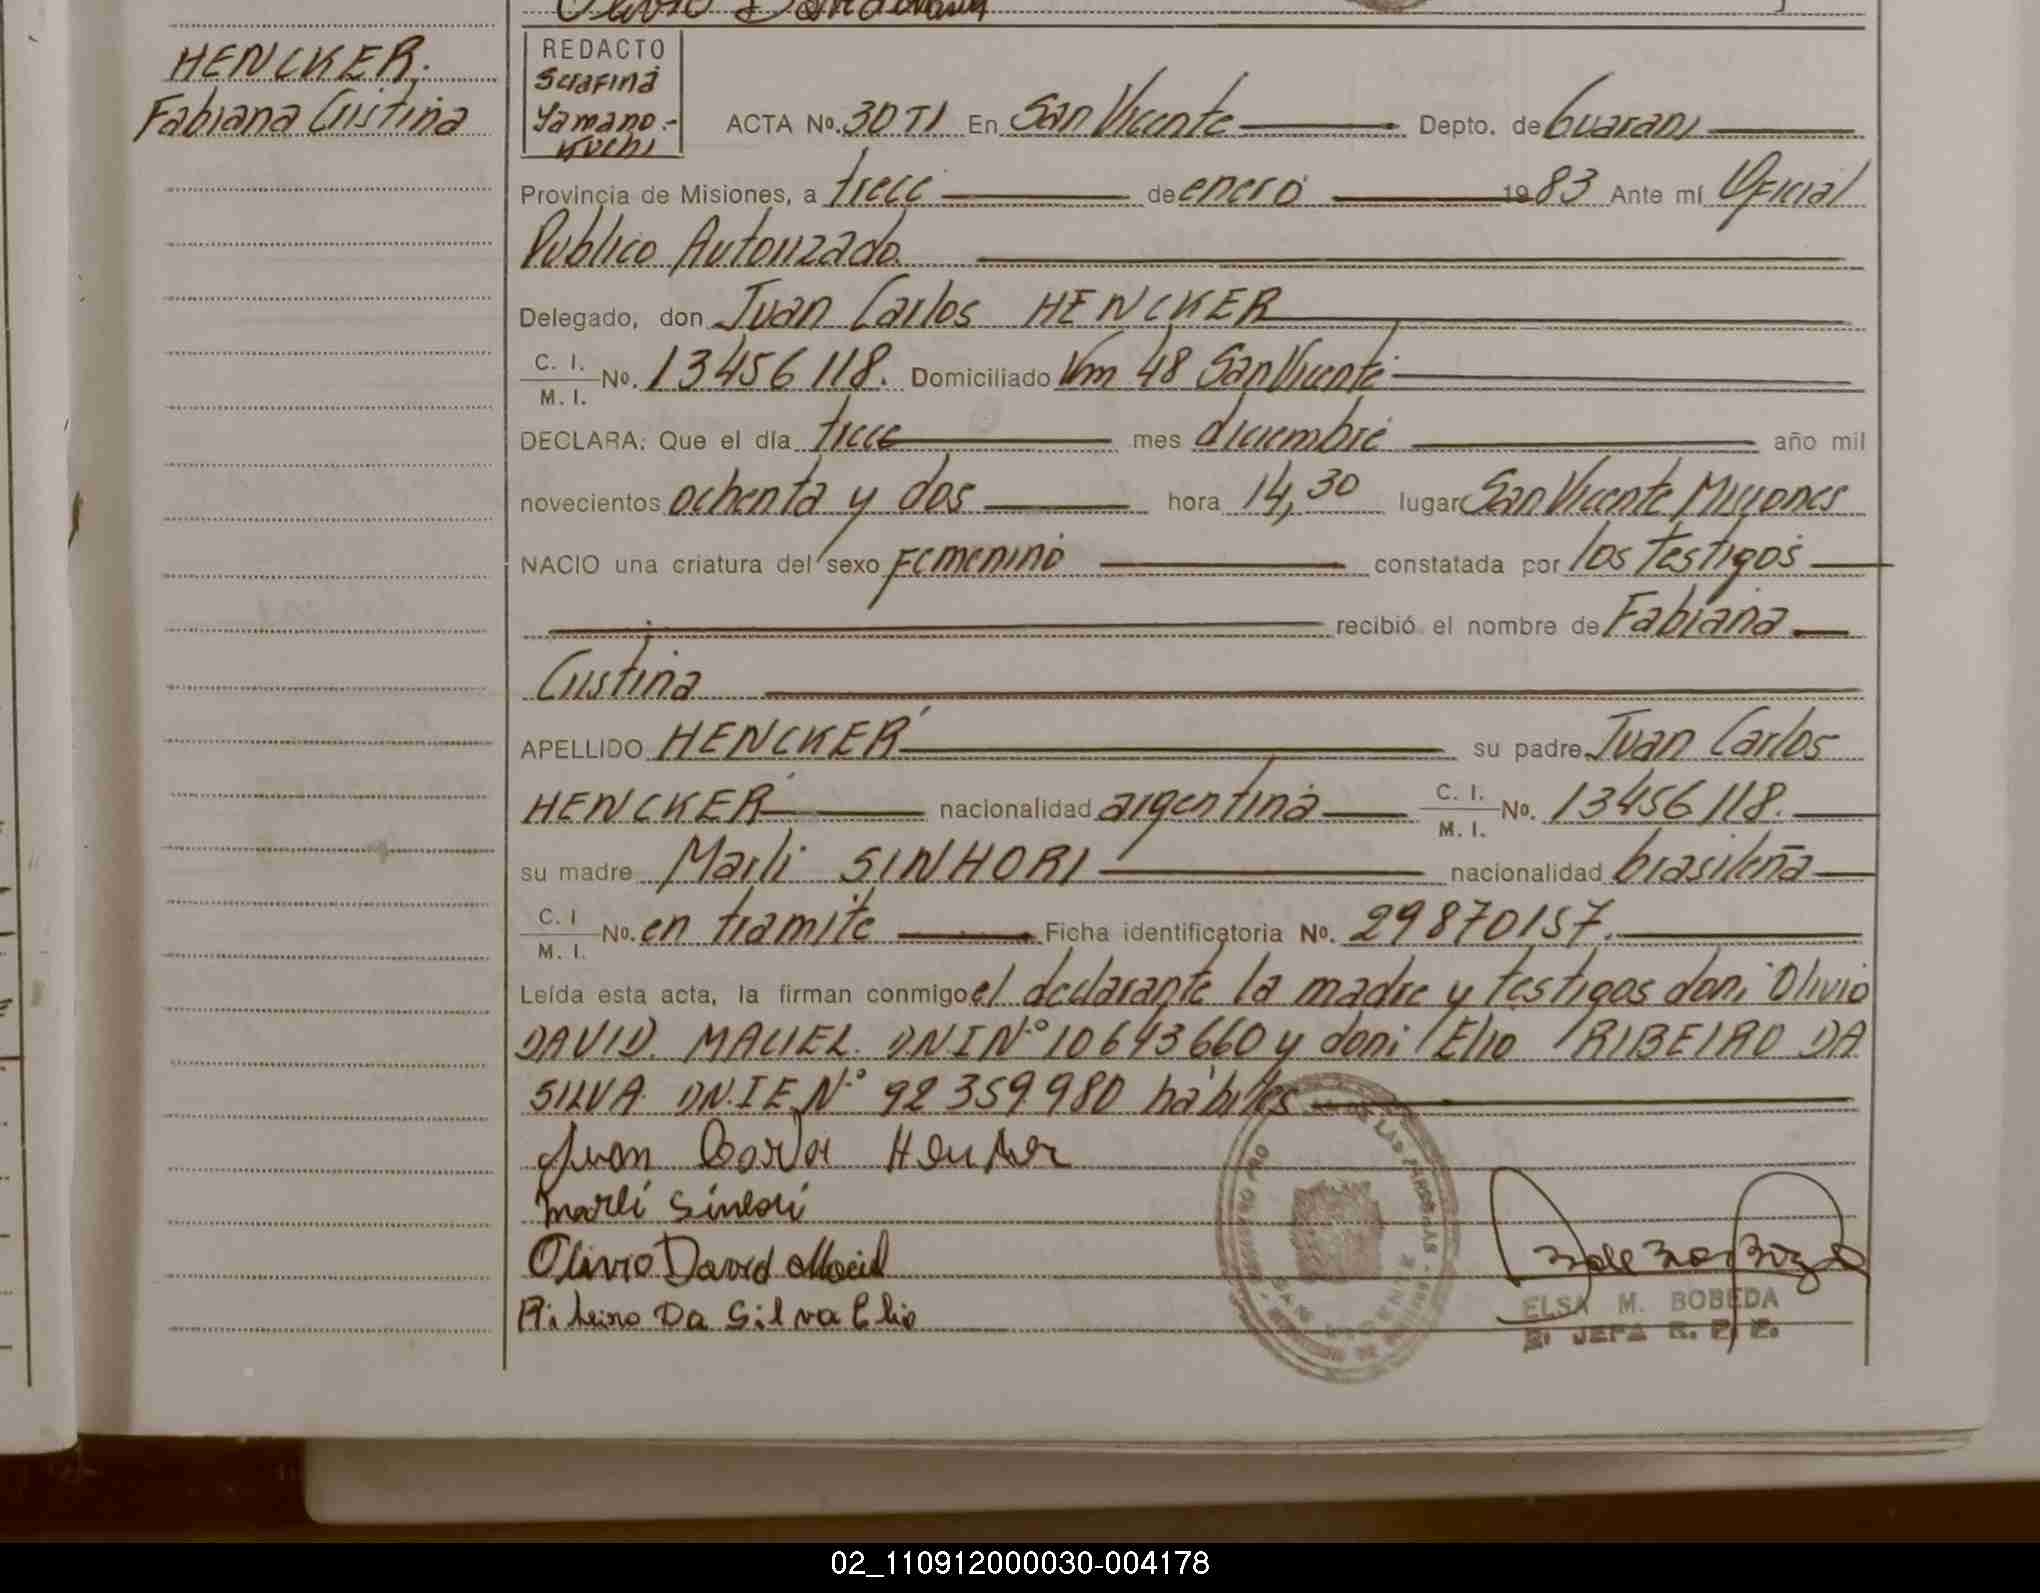 HENCKER.
Fabiana Cristina
REDACTO
Serafina
Yamano.-
kuchi
ACTA Nº. 30 TI En San Vicente Depto. de Guarani
Provincia de Misiones, a trece de enero 1983 Ante mí Oficial
Publico Autorizado
Delegado, don Juan Carlos HENCKER
C. I.
M. I. Nº. 13456118. Domiciliado Km 48 San Vicente
DECLARA: Que el día trece mes diciembre año mil
novecientos ochenta y dos hora 14,30 lugar San Vicente Misiones
NACIO una criatura del sexo Femenino constatada por los testigos
recibió el nombre de Fabiana
Cristina
APELLIDO HENCKER su padre Juan Carlos
HENCKER nacionalidad argentina C. I. M. I. Nº. 13456118.
su madre Marli SINHORI nacionalidad brasileña
C. I M. I. Nº. en tramite Ficha identificatoria Nº. 29870157.
Leída esta acta, la firman conmigo el declarante la madre y testigos don: Olivio
DAVID. MACIEL. DNI Nº 10643660 y don: Elio RIBEIRO DA
SILVA. DN.IE Nº 92359980 hábiles
Juan Carlos Hencker
Marli Sinhori
Olivio David Maciel
Ribeiro Da Silva Elio
ELSA M. BOBEDA
JEFA R. P. P.
02_110912000030-004178